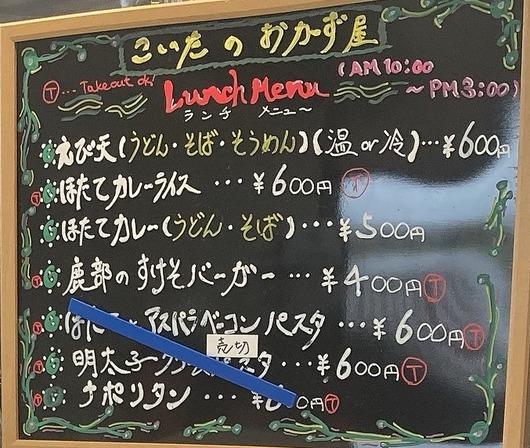 こいたのおかず屋
Ⓣ…Takeout ok!
Lunch Menu
ランチ メニュー
(AM10:00
~PM3:00)
えび天(うどん・そば・そうめん)(温or冷)…¥600円
ほたてカレーライス…¥600円 Ⓣ
ほたてカレー(うどん・そば)…¥500円
鹿部のすけそバーガー…¥400円Ⓣ
アスパラベーコンパスタ…¥600円Ⓣ
売切
明太子 スタ…¥600円Ⓣ
ナポリタン…¥ 0円Ⓣ